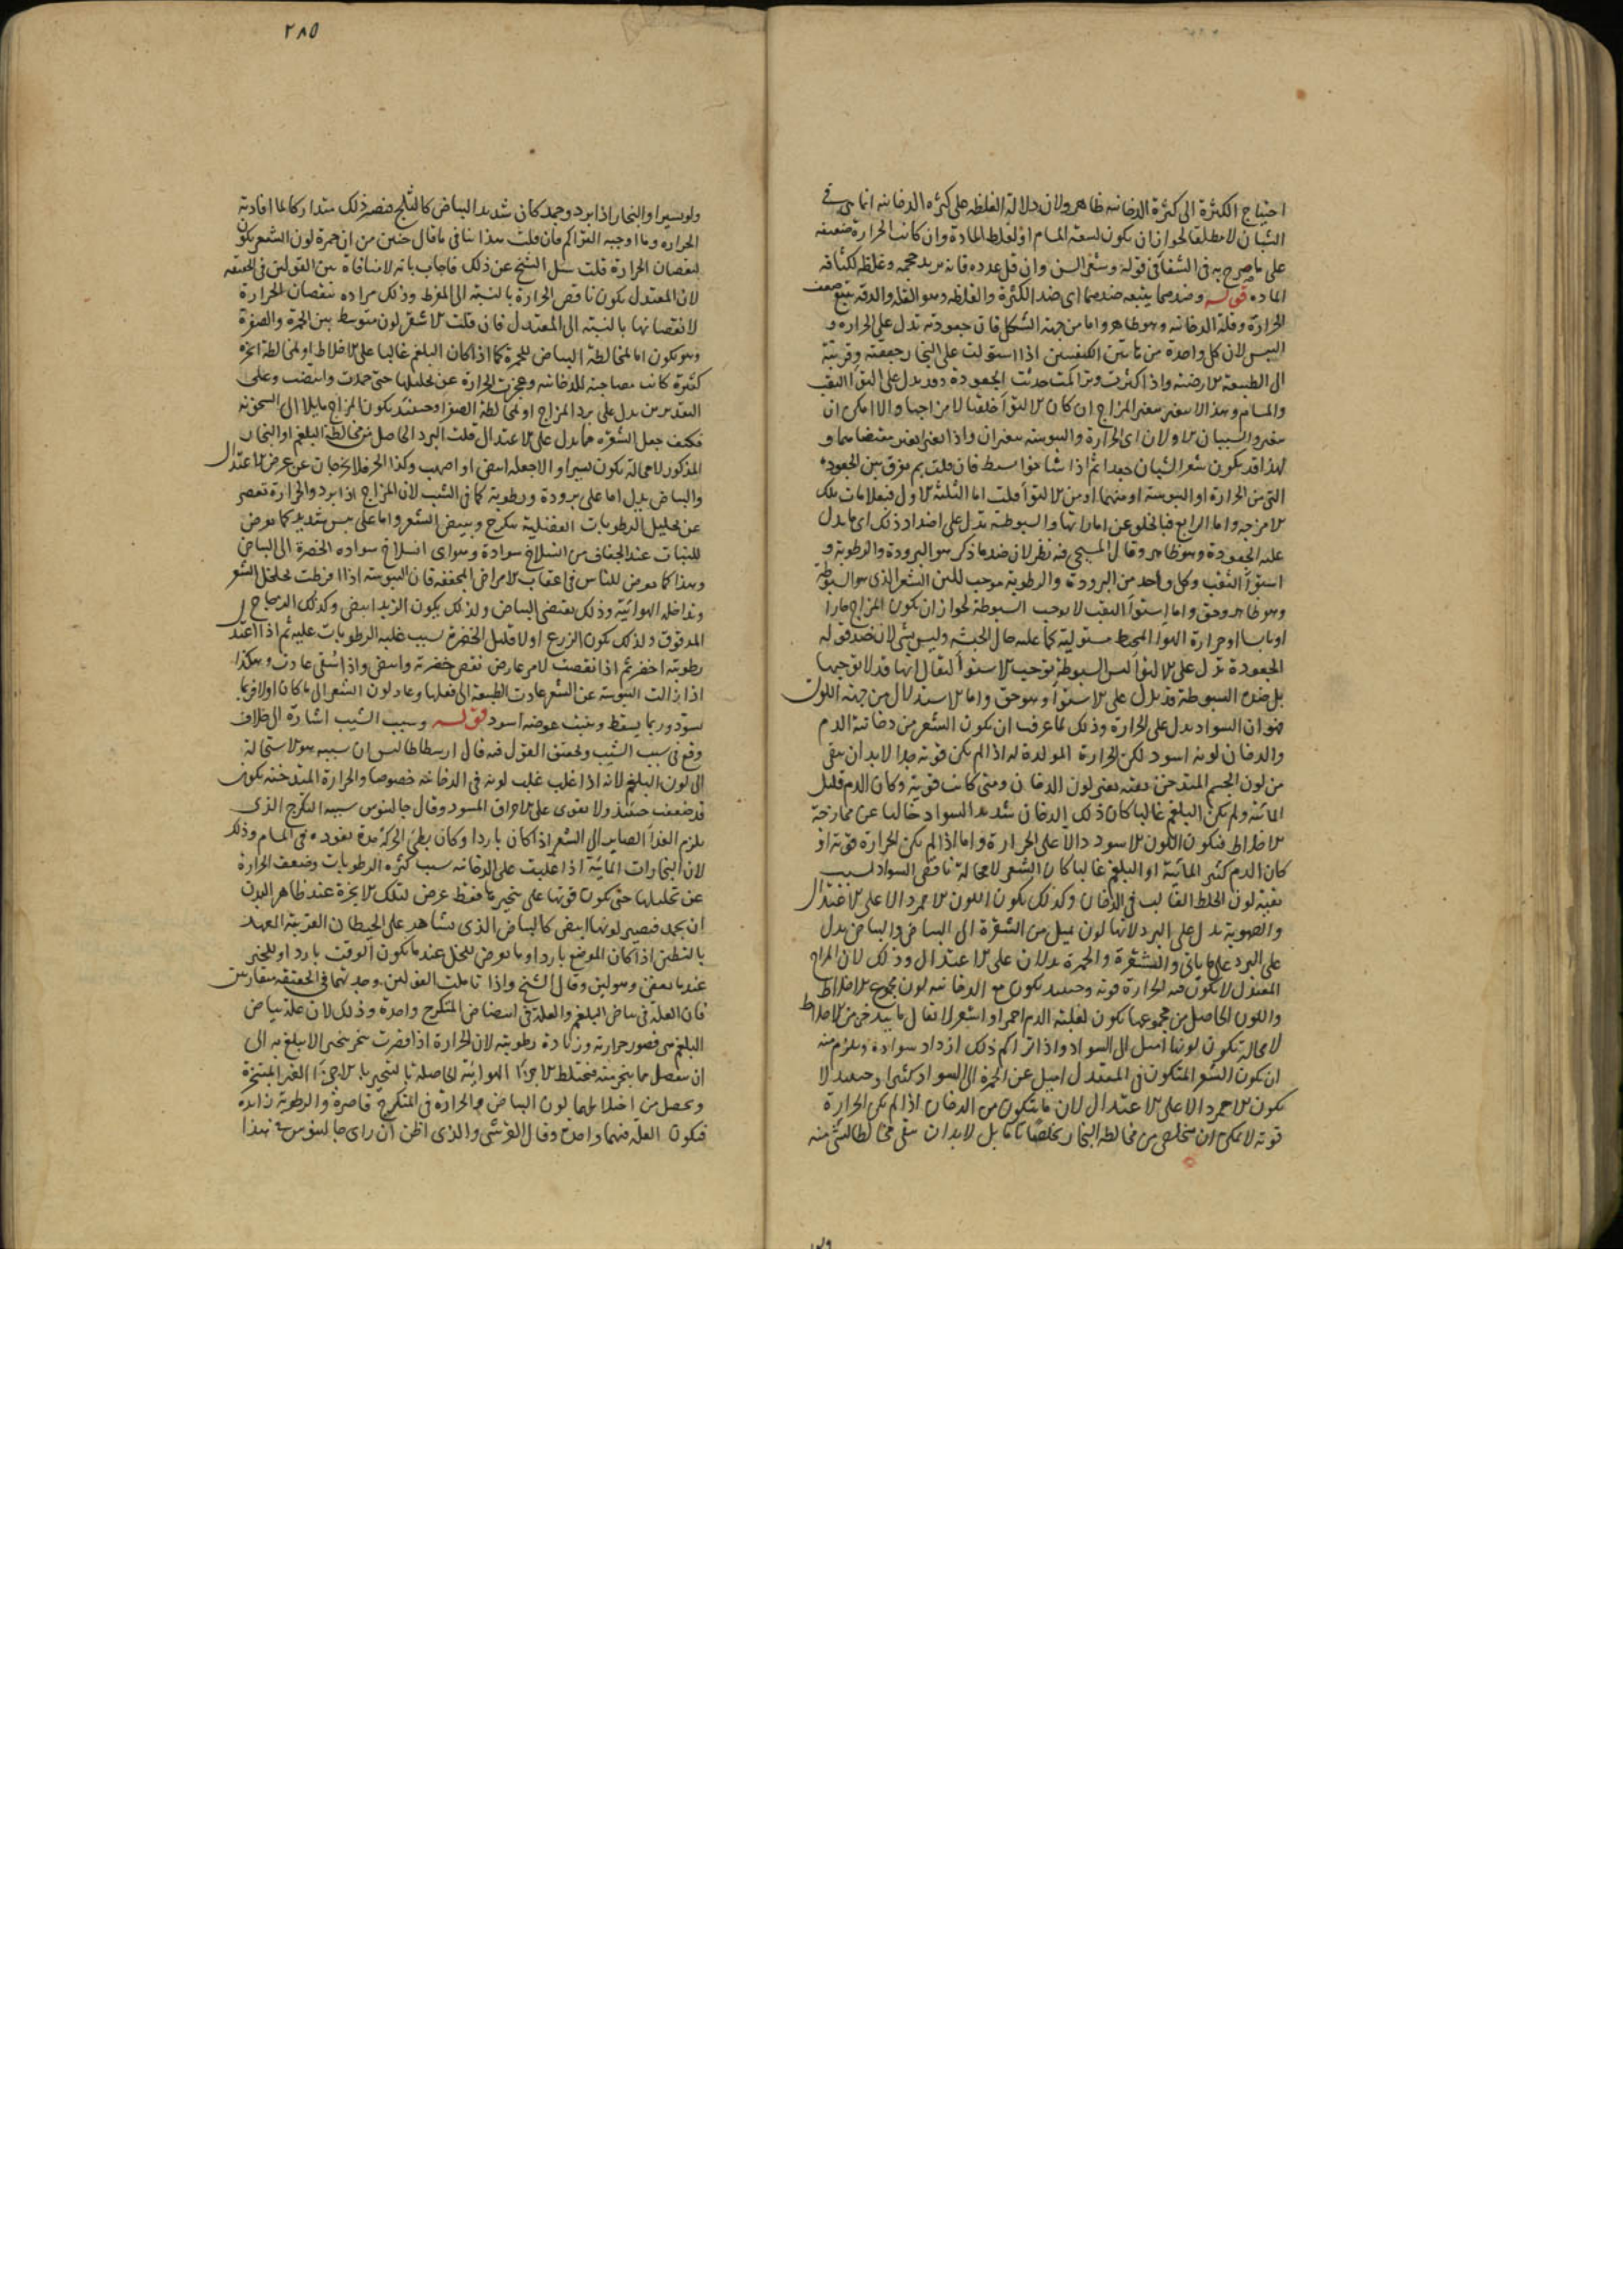 احتياج الكثرة الى كثرة الدخانية ظاهر ولان دلالة الغلظ على كثرة الدخانية انما هى فى
الشبان لا مطلقا لجواز ان يكون لسعة المسام او لغلظ المادة وان كانت الحرارة ضعيفة
على ما صرح به فى الشفا فى قوله وشعر السن وان قل عدده فانه يزيد حجمه وغلظه لكثافة
المادة قوله وضدهما يتبعه ضدهما اى ضد الكثرة والغلظ وهو القلة والدقة يتبع ضعف
الحرارة وقلة الدخانية وهو ظاهر واما من جهة الشكل فان جعودته تدل على الحرارة و
اليبس لان كل واحدة من هاتين الكيفيتين اذا استولت على البخار جففته وقربته
الى الطبيعة الارضية واذا كثرت وتراكمت حدثت الجعودة وقد يدل على التواء الثقب
والمسام وهذا لا يتغير بتغير المزاج ان كان الالتواء خلقيا لا مزاجيا والا امكن ان
يتغير والسببان الاولان اى الحرارة واليبوسة يتغيران واذا تغيرا تغير مقتضاهما و
لهذا قد يكون شعر الشبان جعدا ثم اذا شاخوا سبط فان قلت بم يفرق بين الجعودة
التى من الحرارة او اليبوسة او منهما او من الالتواء قلت اما الثلثة الاول فبعلامات تلك
الامزجة واما الرابع فبالخلو عن اماراتها والسبوطة تدل على اضداد ذلك اى ما يدل
عليه الجعودة وهو ظاهر وقال المسيحى فيه نظر لان ضد ما ذكر هو البرودة والرطوبة و
استواء الثقب وكل واحد من البرودة والرطوبة موجب للين الشعر الذى هو السبوطة
وهو ظاهر وحق واما استواء الثقب لا يوجب السبوطة لجواز ان يكون المزاج حارا
او يابسا او حرارة الهواء المحيط مستولية كما عليه حال الحبشة وليس بشى لان ضد قوله
الجعودة تدل على الالتواء ليس السبوطة توجب الاستواء ليقال انها قد لا توجبها
بل ضده السبوطة قد تدل على الاستواء وهو حق واما الاستدلال من جهة اللون
فهو ان السواد يدل على الحرارة وذلك لما عرف ان يكون الشعر من دخانية الدم
والدخان لونه اسود لكن الحرارة المولدة له اذا لم تكن قوية جدا لا بد ان يبقى
من لون الجسم المتدخن بقية تغير لون الدخان ومتى كانت قوية وكان الدم قليل
المائية ولم يكن البلغم غالبا كان ذلك الدخان شديد السواد خاليا عن ممازجة
الاخلاط فيكون اللون الاسود دالا على الحرارة واما اذا لم تكن الحرارة قوية او
كان الدم كثير المائية او البلغم غالبا كان الشعر لا محالة ناقص السواد لسبب
بقية لون الخلط الغالب فى الدخان وكذلك يكون اللون الاحمر دالا على الاعتدال
والصهوبة تدل على البرد لانها لون يميل من الشقرة الى البياض والبياض يدل
على البرد على ما ياتى والشقرة والحمرة يدلان على الاعتدال وذلك لان المزاج
المعتدل لا يكون فيه الحرارة قوية وحينئذ يكون مع الدخانية لون مجموع الاخلاط
واللون الحاصل من مجموعها يكون لغلبة الدم احمر او اشقر لا يقال ما يتدخن من الاخلاط
لا محالة يكون لونها اميل الى السواد واذا تراكم ذلك ازداد سواده ويلزم منه
ان يكون الشعر المتكون فى المعتدل اميل عن الحمرة الى السواد كثيرا وحينئذ لا
يكون الاحمر دالا على الاعتدال لان ما يتكون من الدخان اذا لم تكن الحرارة
قوية لا يمكن ان يتخلص من مخالطة البخار تخلصا تاما بل لا بد ان يبقى مخالطا لشى منه
ولو
٢٨٥
ولو يسيرا والبخار اذا برد وجمد كان شديد البياض كالثلج فيصير ذلك متداركا لما افادته
الحرارة وما اوجبه التراكم فان قلت هذا ينافى ما قال حنين من ان حمرة لون الشعر يكون
لنقصان الحرارة قلت سئل الشيخ عن ذلك فاجاب بانه لا منافاة بين القولين فى الحقيقة
لان المعتدل يكون ناقص الحرارة بالنسبة الى المفرط وذلك مراده بنقصان الحرارة
لا نقصانها بالنسبة الى المعتدل فان قلت الاشقر لون متوسط بين الحمرة والصفرة
وهو يكون اما لمخالطة البياض للحمرة كما اذا كان البلغم غالبا على الاخلاط او لمخالطة ابخرة
كثيرة كانت مصاحبة للدخانية وعجزت الحرارة عن تحليلها حتى جمدت وابيضت وعلى
التقديرين يدل على برد المزاج او لمخالطة الصفراء وحينئذ يكون المزاج مايلا الى السخونة
فكيف جعل الشقرة مما يدل على الاعتدال قلت البرد الحاصل من مخالطة البلغم او البخار
المذكور لا محالة يكون يسيرا والا جعله ابيض او اصهب وكذا الحر فلا يخرجان عن عرض الاعتدال
والبياض يدل اما على برودة ورطوبة كما فى الشيب لان المزاج اذا برد والحرارة تقصر
عن تحليل الرطوبات الفضلية يتكرج ويبيض الشعر واما على يبس شديد كما يعرض
للنبات عند الجفاف من انسلاخ سواده وهو اى انسلاخ سواده الخضرة الى البياض
وهذا كما يعرض للناس فى اعقاب الامراض المجففة فان اليبوسة اذا افرطت تخلخل الشعر
وتداخله الهوائية وذلك يقتضى البياض ولذلك يكون الزبد ابيض وكذلك الزجاج
المدقوق ولذلك يكون الزرع اولا قليل الخضرة بسبب غلبة الرطوبات عليه ثم اذا اعتدل
رطوبته اخضر ثم اذا نقصت لامر عارض نقص خضرته وابيض واذا سقى عادت وهكذا
اذا زالت اليبوسة عن الشعر عادت الطبيعة الى فعلها وعاد لون الشعر الى ما كان اولا فربما
يسود وربما يسقط وينبت عوضه اسود قوله وسبب الشيب اشارة الى خلاف
وقع فى سبب الشيب وتحقيق القول فيه قال ارسطاطاليس ان سببه هو الاستحالة
الى لون البلغم لانه اذا غلب غلب لونه فى الدخانية خصوصا والحرارة المتدخنة تكون
قد ضعفت حينئذ ولا تقوى على الاحراق المسود وقال جالينوس سببه التكرج الذى
يلزم الغذاء الصاير الى الشعر اذا كان باردا وكان بطئ الحركة مدة نفوذه فى المسام وذلك
لان البخارات المائية اذا غلبت على الدخانية بسبب كثرة الرطوبات وضعف الحرارة
عن تحليلها حتى تكون قوتها على تبخيرها فقط عرض لتلك الابخرة عند ظاهر البدن
ان يجمد فيصير لونها ابيض كالبياض الذى يشاهد على الحيطان القريبة العهد
بالتطيين اذا كان الموضع باردا وما يعرض للخل عندما يكون الوقت باردا وللخبز
عندما يعفن وهو لين وقال الشيخ واذا تاملت القولين وجدتهما فى الحقيقة متقاربين
فان العلة فى بياض البلغم والعلة فى ابيضاض المتكرج واحدة وذلك لان علة بياض
البلغم هى قصور حرارته وزيادة رطوبته لان الحرارة اذا قصرت تبخر تبخيرا لا يبلغ به الى
ان ينفصل ما يتبخر منه فيختلط الاجزاء الهوائية الحاصلة بالتبخير بالاجزاء الغير المتبخرة
ويحصل من اختلاطهما لون البياض والحرارة فى المتكرج قاصرة والرطوبة زايدة
فيكون العلة فيهما واحدة وقال القرشى والذى اظن ان راى جالينوس فى هذا